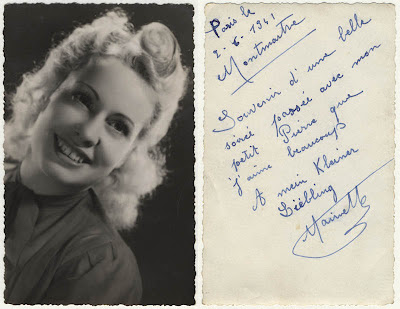 Paris le
2. 6. 1941
Montmartre
Souvenir d'une belle
soirée passée avec mon
petit Pierre que
j'aime beaucoup
A mein Kleiner
Liebling